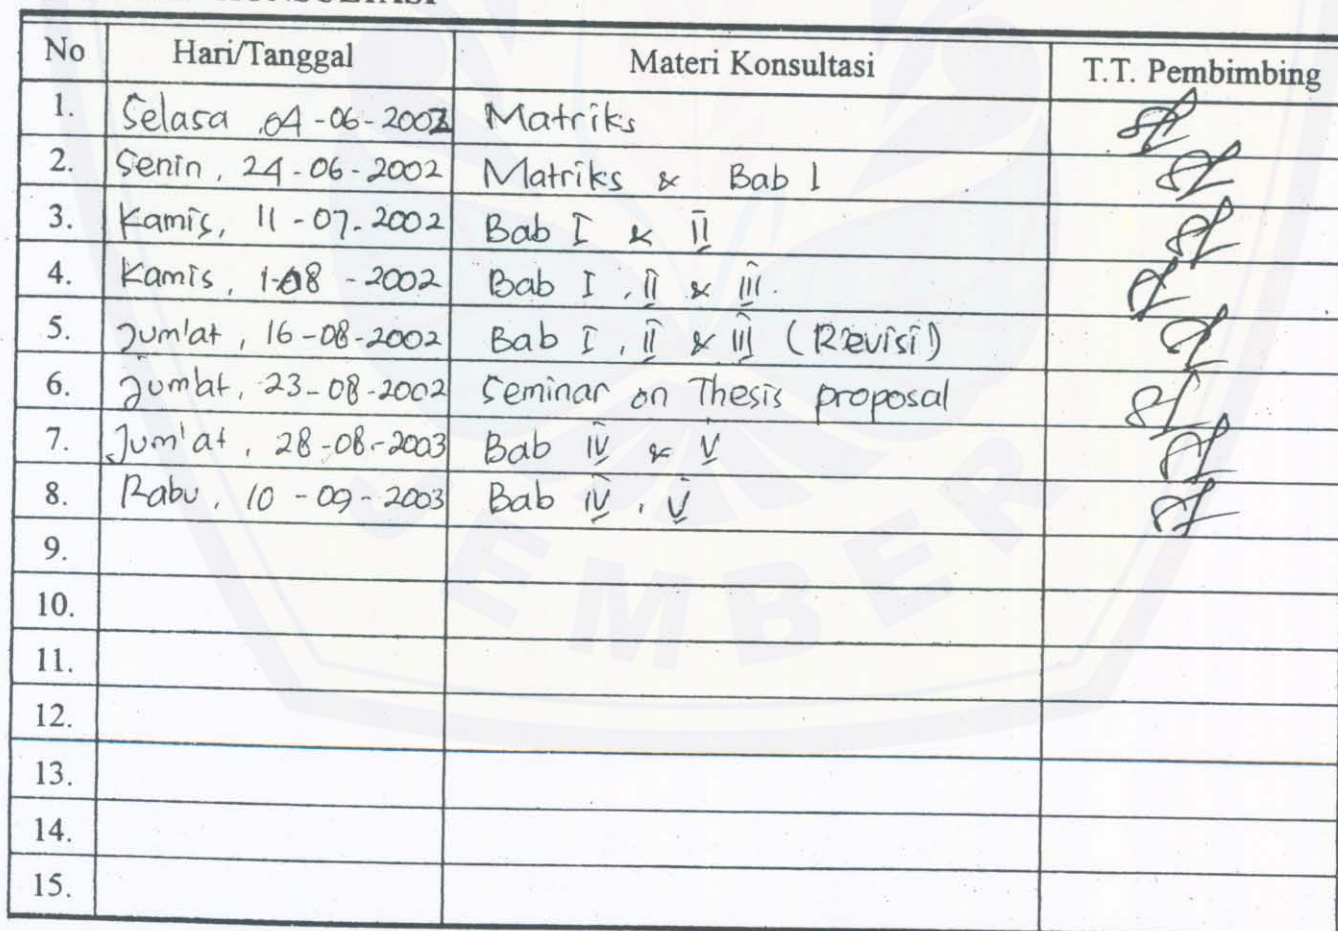 KONSULTASI
No Hari/Tanggal Materi Konsultasi T.T. Pembimbing
1. Selasa, 04-06-2002 Matriks
2. Senin, 24-06-2002 Matriks & Bab I
3. Kamis, 11-07-2002 Bab I & II
4. Kamis, 1-08-2002 Bab I, II & III.
5. Jum'at, 16-08-2002 Bab I, II & III (Revisi)
6. Jum'at, 23-08-2002 Seminar on Thesis proposal
7. Jum'at, 28-08-2003 Bab IV & V
8. Rabu, 10-09-2003 Bab IV, V
9.
10.
11.
12.
13.
14.
15.
JEMBER